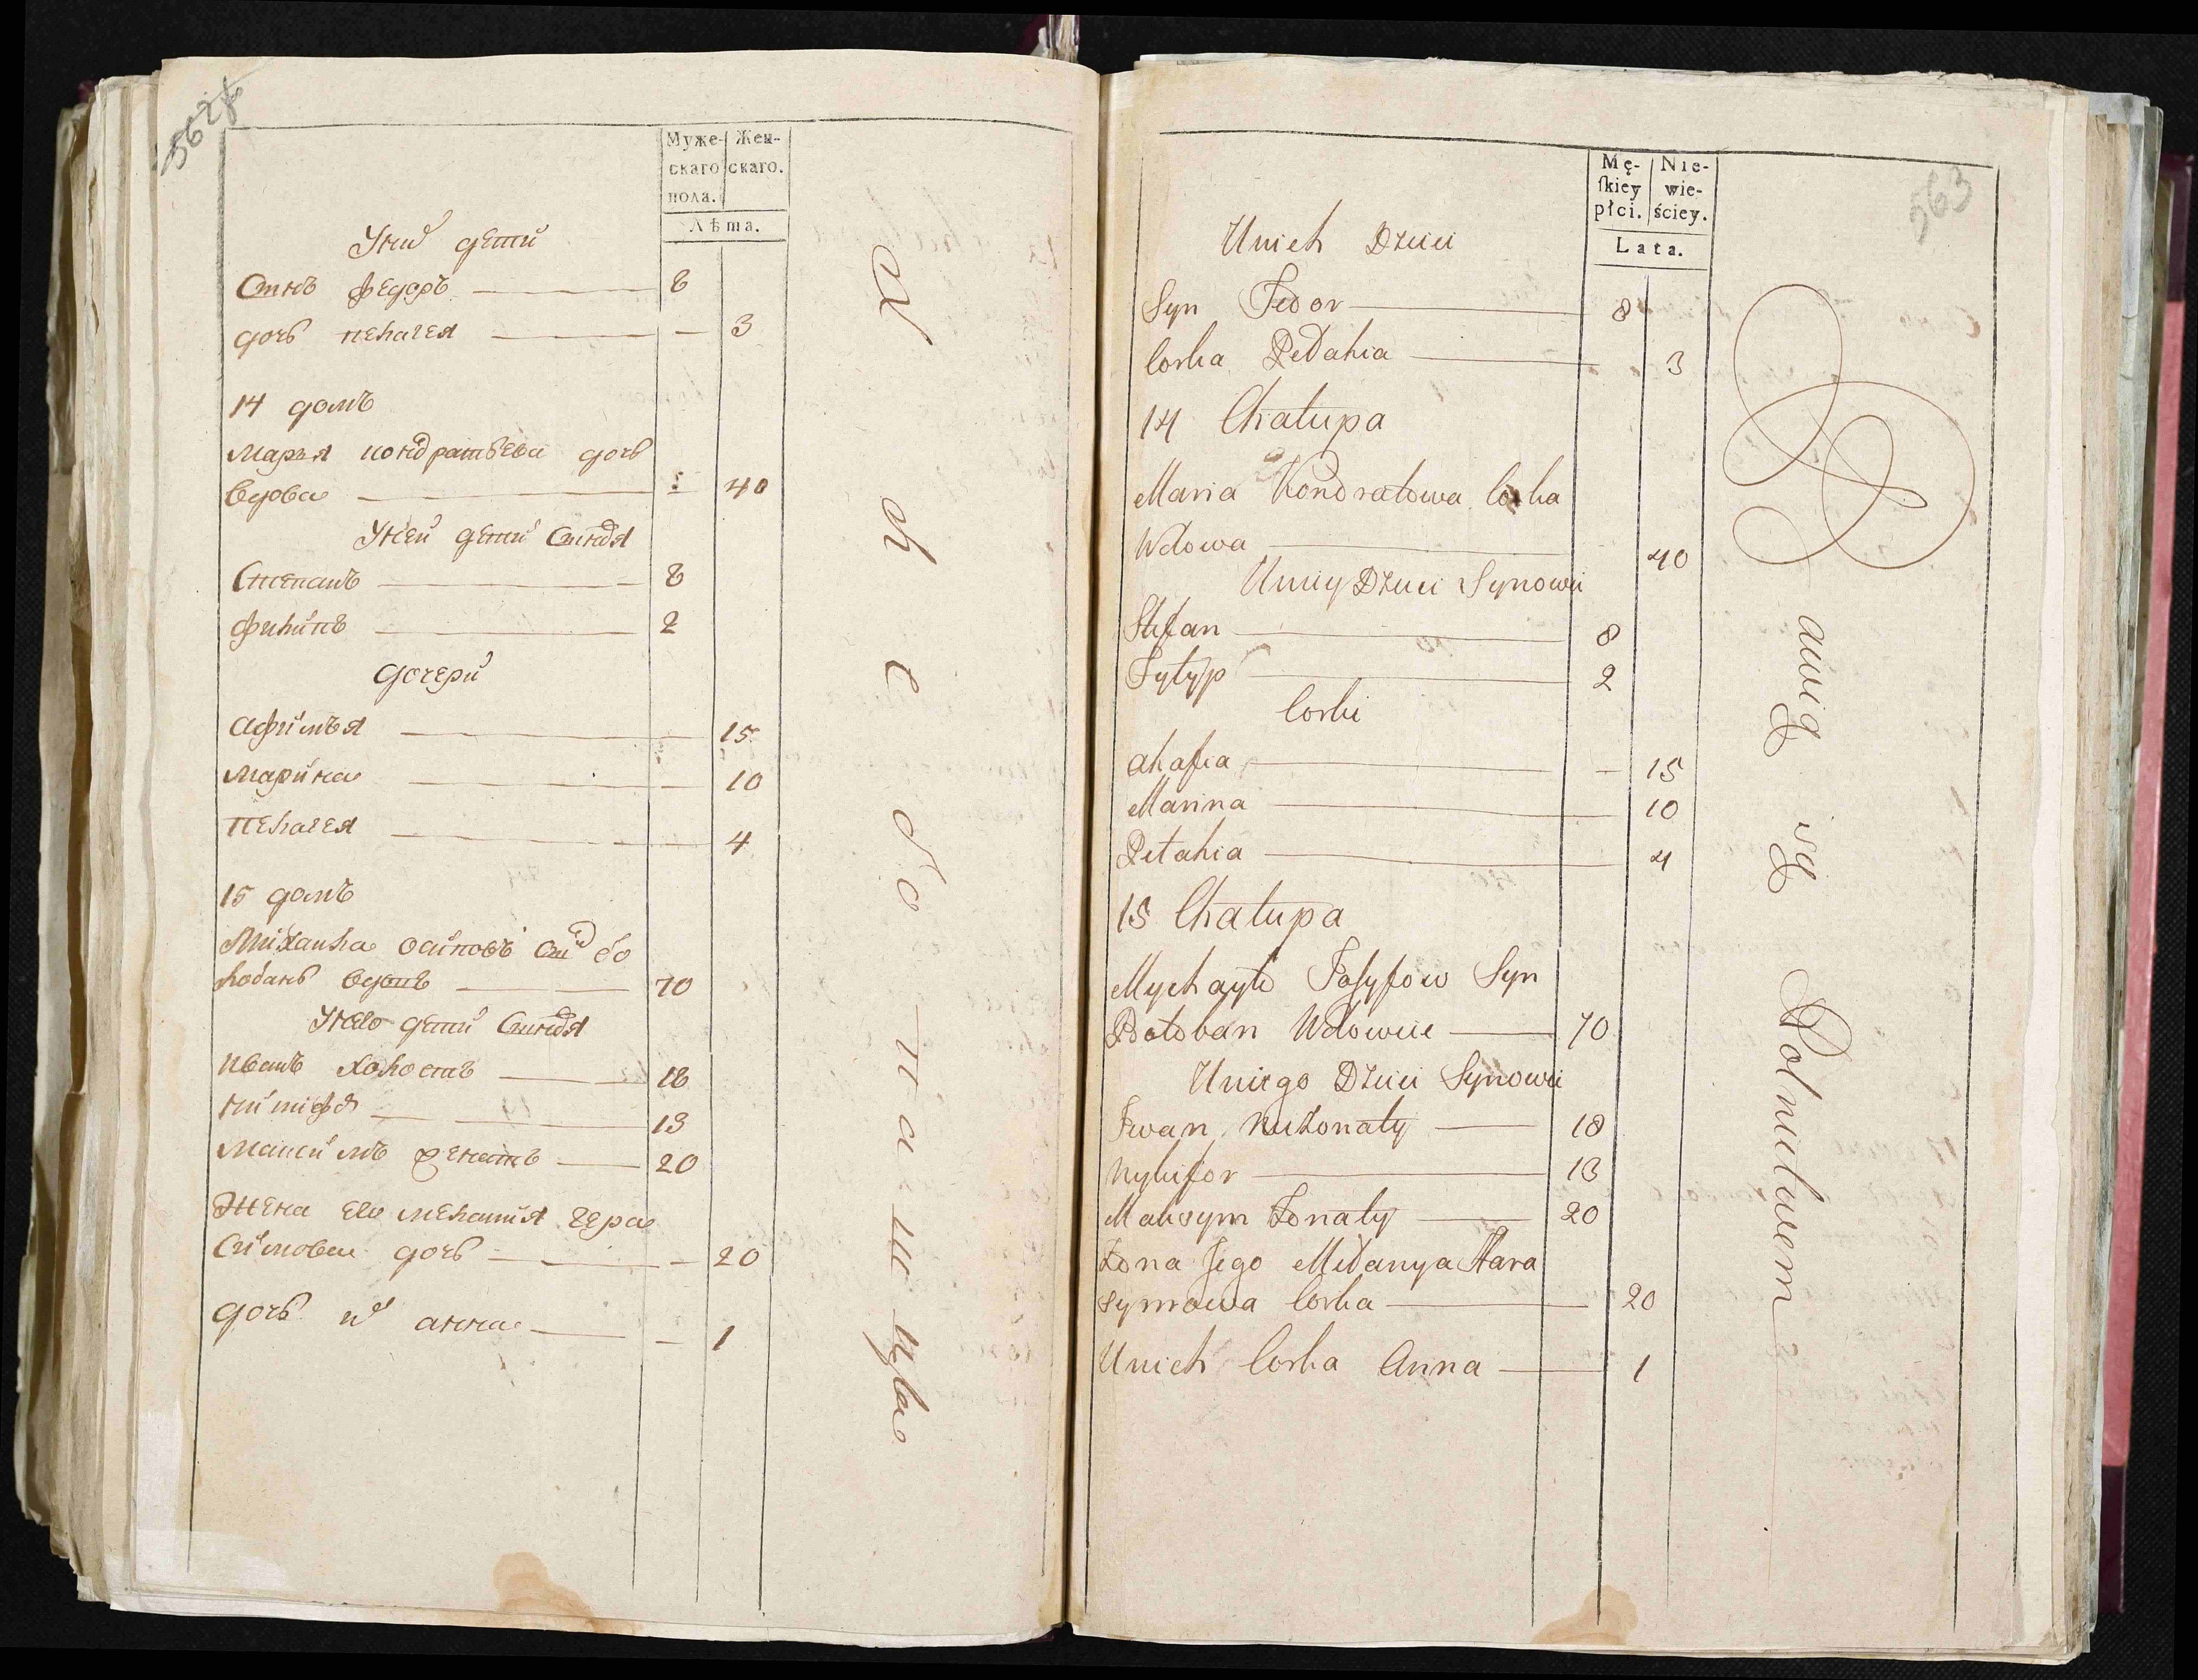 562 об
Муже- Жен-
скаго скаго.
пола.
Лѣта.
У них дети
Сынъ федоръ 8
дочь пелагея — 3
14 домъ
Марья кондратьева дочь
вдова — 40
У ней дети Сыновья
Степанъ 8
филипъ 2
дочери
Афимья 15
Марина 10
Пелагея 4
15 домъ
Михаила осиповъ Сын бо
лобанъ вдовъ 70
У него дети Сыновья
Иванъ холостъ 18
никифоръ 13
Максимъ женатъ 20
Жена его меланія гера
симова дочь — 20
дочь их анна — 1
563
Mę- Nie-
ſkiey wie-
płci. ściey.
Lata.
Unich Dzieci
Syn Fedor 8
Corka Pełahia 3
14 Chałupa
Maria Kondratowa Corka
Wdowa 40
Uniey Dzieci Synowie
Stefan 8
Fyłyp 2
Corki
Ahafia — 15
Marina 10
Pełahia 4
15 Chałupa
Mychayło Josyfow Syn
Bołoban Wdowiec 70
Uniego Dzieci Synowie
Iwan Nieżonaty 18
Nykifor 13
Maksym Żonaty 20
Żona Jego Mełanya Hara
symowa Corka 20
Unich Corka Anna 1